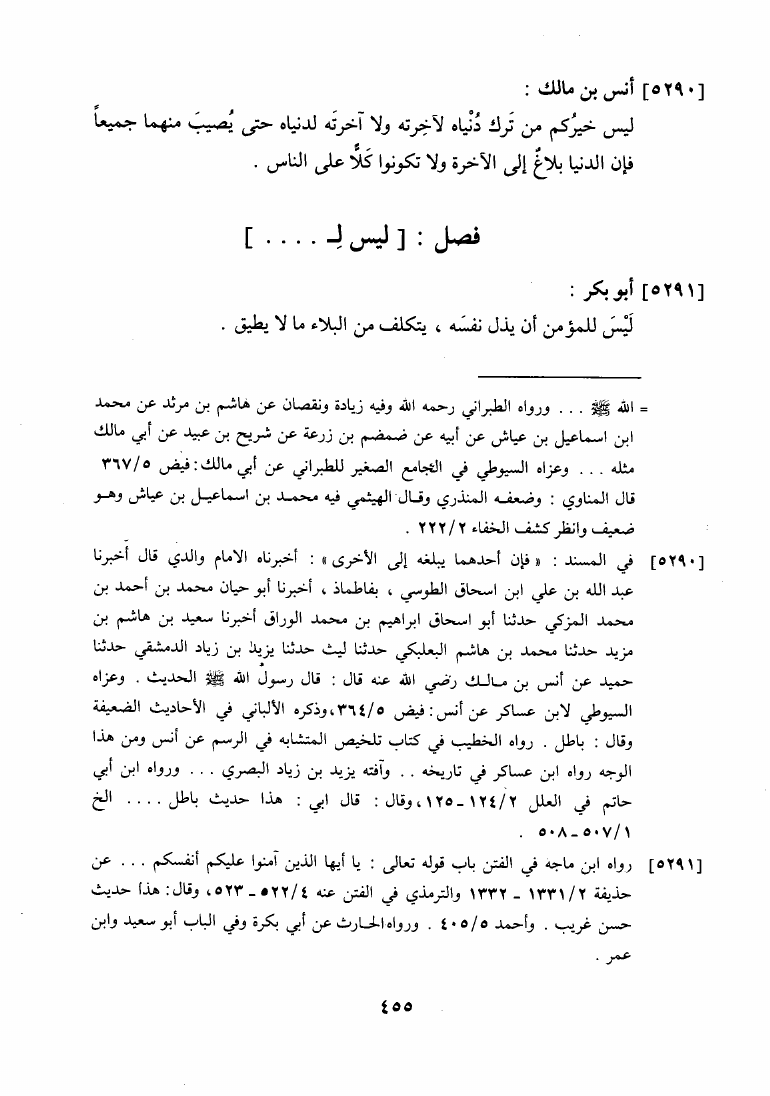 [٥٢٩٠] أنس بن مالك :
ليس خيرُكم من تَرك دُنْياه لآخِرته ولا آخرتَه لدنياه حتى يُصيبَ منهما جميعاً
فإن الدنيا بلاغٌ إلى الآخرة ولا تكونوا كَلًّا على الناس .
فصل : [ ليس لِـ .... ]
[٥٢٩١] أبو بكر :
لَيْسَ للمؤمن أن يذل نفسَه ، يتكلف من البلاء ما لا يطيق .
= الله ﷺ ... ورواه الطبراني رحمه الله وفيه زيادة ونقصان عن هاشم بن مرثد عن محمد
ابن اسماعيل بن عياش عن أبيه عن ضمضم بن زرعة عن شريح بن عبيد عن أبي مالك
مثله ... وعزاه السيوطي في الجامع الصغير للطبراني عن أبي مالك: فيض ٣٦٧/٥
قال المناوي : وضعفه المنذري وقال الهيثمي فيه محمد بن اسماعيل بن عياش وهو
ضعيف وانظر كشف الخفاء ٢٢٢/٢ .
[٥٢٩٠] في المسند : «فإن أحدهما يبلغه إلى الأخرى» : أخبرناه الامام والدي قال أخبرنا
عبد الله بن علي ابن اسحاق الطوسي ، بفاطماذ ، أخبرنا أبو حيان محمد بن أحمد بن
محمد المزكي حدثنا أبو اسحاق ابراهيم بن محمد الوراق أخبرنا سعيد بن هاشم بن
مزيد حدثنا محمد بن هاشم البعلبكي حدثنا ليث حدثنا يزيد بن زياد الدمشقي حدثنا
حميد عن أنس بن مالك رضي الله عنه قال : قال رسول الله ﷺ الحديث . وعزاه
السيوطي لابن عساكر عن أنس: فيض ٣٦٤/٥، وذكره الألباني في الأحاديث الضعيفة
وقال : باطل . رواه الخطيب في كتاب تلخيص المتشابه في الرسم عن أنس ومن هذا
الوجه رواه ابن عساكر في تاريخه .. وآفته يزيد بن زياد البصري ... ورواه ابن أبي
حاتم في العلل ١٢٤/٢ ـ ١٢٥، وقال : قال ابي : هذا حديث باطل .... الخ
٥٠٧/١ ـ ٥٠٨ .
[٥٢٩١] رواه ابن ماجه في الفتن باب قوله تعالى : يا أيها الذين آمنوا عليكم أنفسكم ... عن
حذيفة ١٣٣١/٢ ـ ١٣٣٢ والترمذي في الفتن عنه ٥٢٢/٤ ـ ٥٢٣، وقال: هذا حديث
حسن غريب . وأحمد ٤٠٥/٥ . ورواه الحارث عن أبي بكرة وفي الباب أبو سعيد وابن
عمر .
٤٥٥